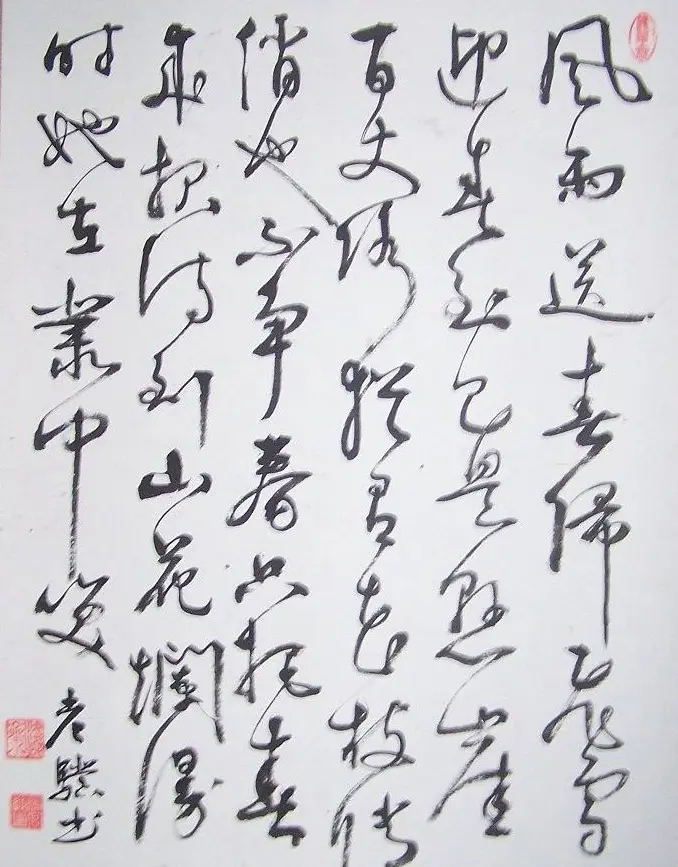 风雨送春歸飛雪
迎春到已是懸崖
百丈冰猶有花枝俏
俏也不争春只把春
来报待到山花爛漫
时她在叢中笑
老骥书